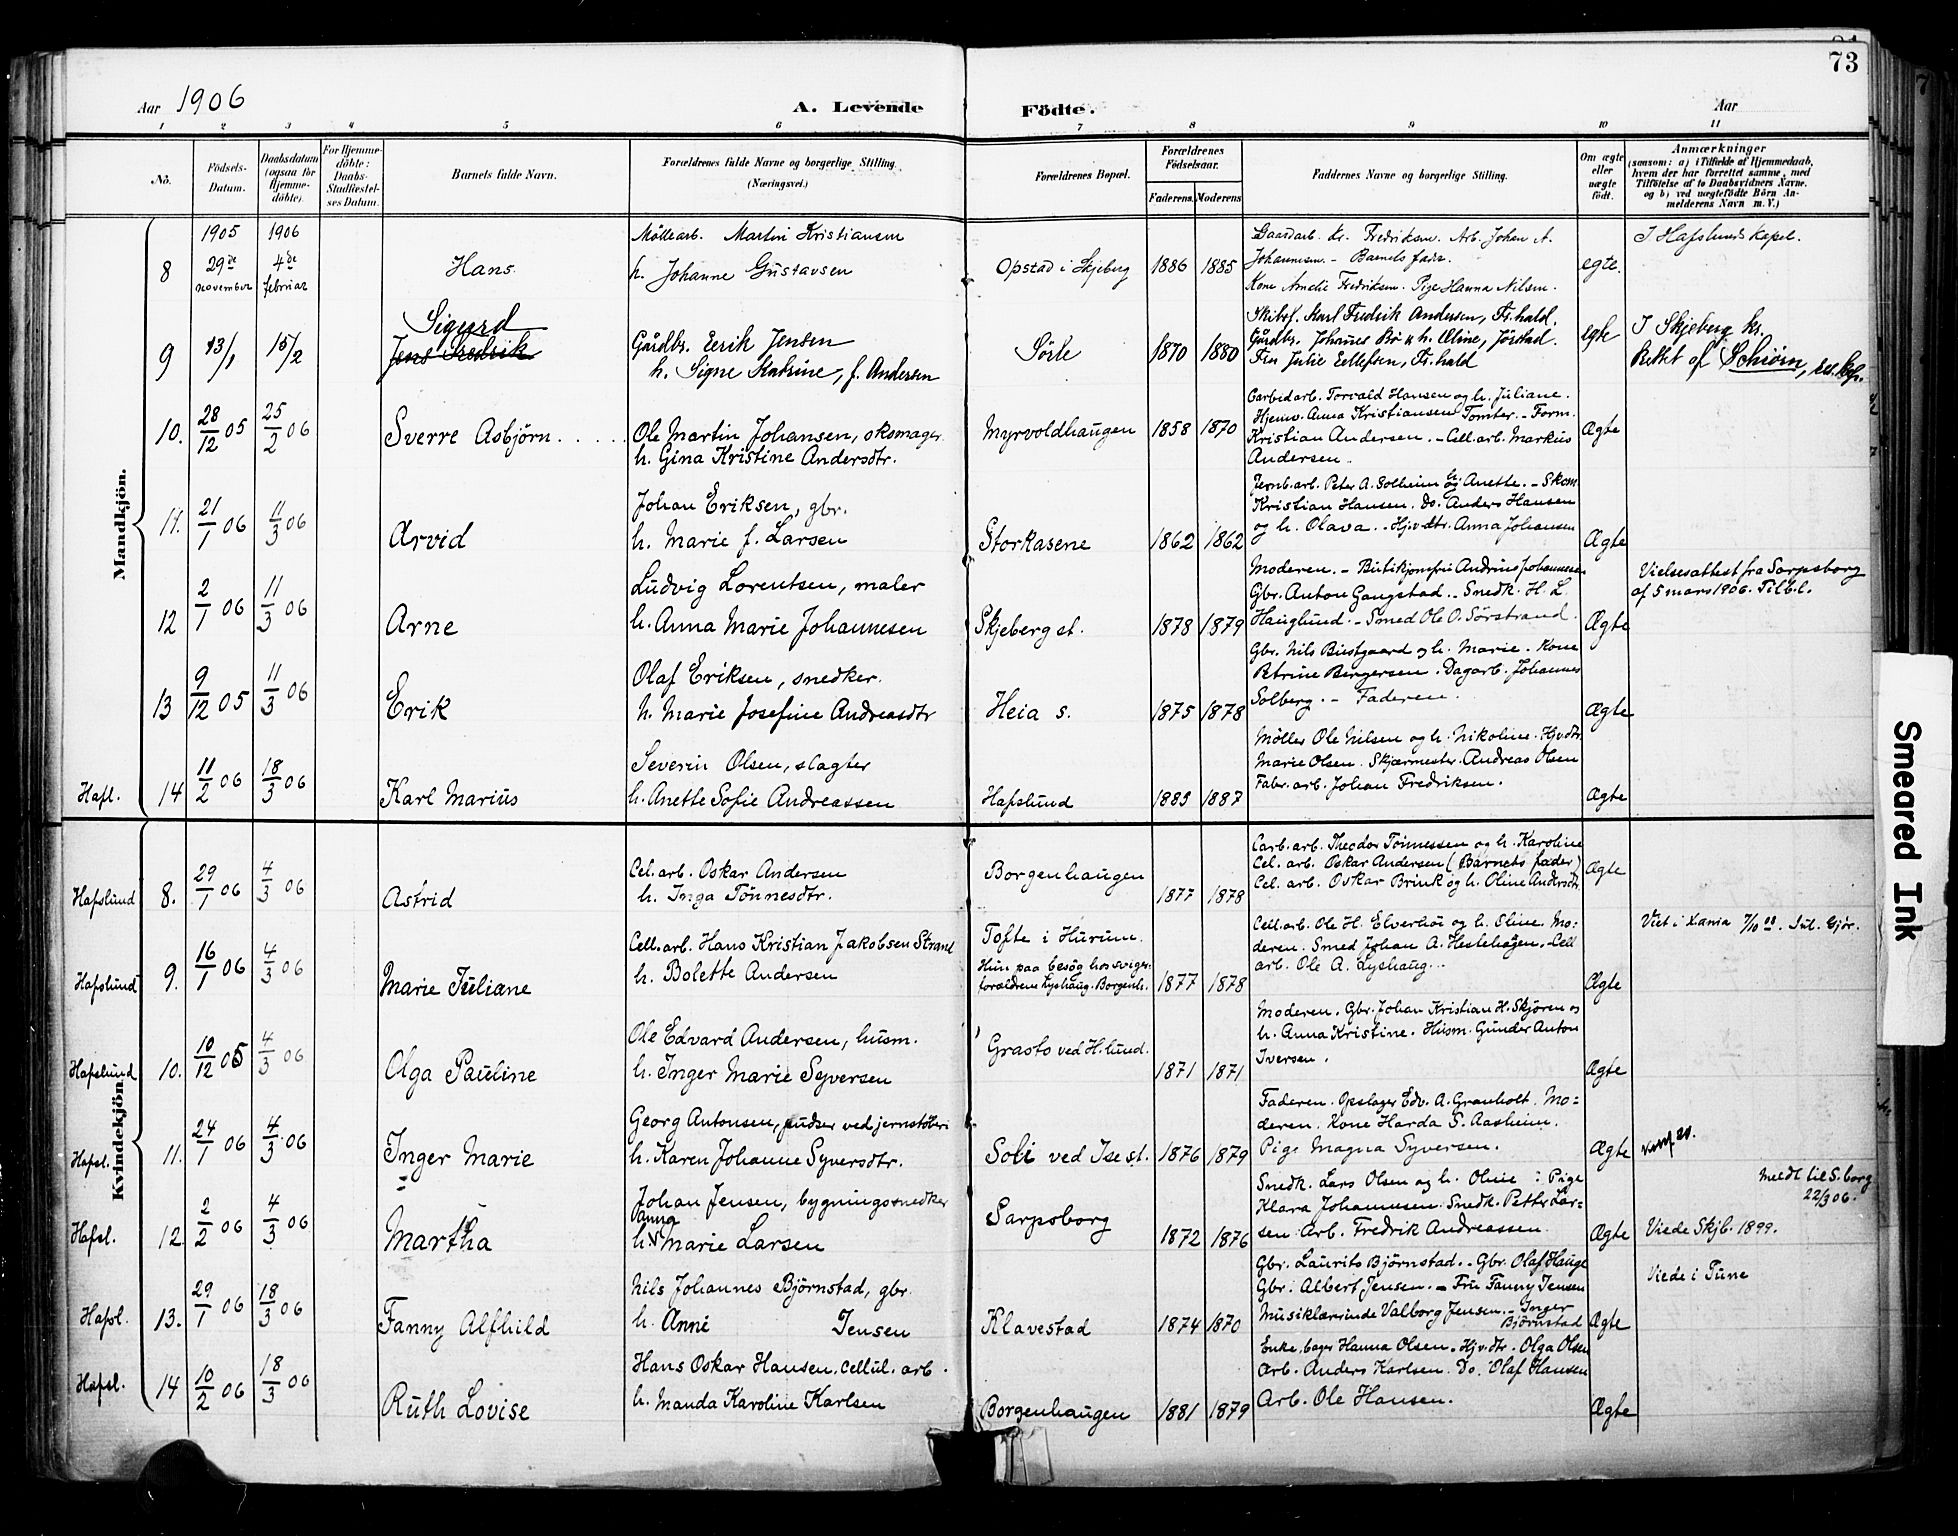 73
Aar 1906
A. Levende
Födte.
Aar
1 2 3 4 5 6 7 8 9 10 11
No.
Födsels-Datum.
Daabsdatum (ogsaa for Hjemme-döbte).
For Hjemme-döbte: Daabs-Stadfæstel-ses Datum.
Barnets fulde Navn.
Forældrenes fulde Navne og borgerlige Stilling. (Næringsvei.)
Forældrenes Bopæl.
Forældrenes Födselsaar.
Faderens. Moderens.
Faddernes Navne og borgerlige Stilling.
Om ægte eller uægte födt.
Anmærkninger
(saasom: a) i Tilfælde af Hjemmedaab, hvem der har forrettet samme, med Tilföielse af to Daabsvidners Navne, og b) ved uægtefödte Börn An-melderens Navn m. V.)
Mandkjön.
8
1905 29de november
1906 4de februar
Hans
Møllearb. Martin Kristiansen
h. Johanne Gustavsen
Opstad i Skjeberg
1886 1885
Gaardarb. Kr. Fredriksen. Arb. Johan A.
Johannesen. - Barnets fader.
Kone Amelie Fredriksen. Pige Hanna Nilsen.
egte.
I Hafslunds kapel.
9
13/1
15/2
Sigurd
Jens Fredrik
Gårdbr. Eerik Jensen
h. Signe Katrine, f. Andersen
1870 1880
Skibsf. Karl Fredrik Andersen, Fr.hald.
Gårdbr. Johannes Bø & h. Eline, Jørstad.
Fru Julie Eellefsen, Fr.hald
egte
I Skjeberg kr.
Rettet af Schiörn, res. kap.
10.
28/12 05
25/2 06
Sverre Asbjörn
Ole Martin Johansen, skomager
h. Gina Kristine Andersdtr.
Myrvoldhaugen
1858 1870
Carbidarb. Torvald Hansen og h. Juliane.
Hjemv. Anna Kristiansen Tomter. - Form.
Kristian Andersen. - Cell.arb. Markus
Andersen.
Ægte
11.
21/1 06
11/3 06
Arvid
Johan Eriksen, gbr.
h. Marie f. Larsen
Storkasene
1862 1862
Jernb.arb. Peter A. Solheim og h. Anette. - Skom.
Kristian Hansen. Do. Anders Hansen
og h. Olava. - Hjvdtr. Anna Johansen
Ægte
12
2/1 06
11/3 06
Arne
Ludvig Lorentsen, maler
h. Anna Marie Johannesen
Skjeberg st.
1878 1879
Moderen. - Butikjomfru Andrine Johannesen
Gbr. Anton Gangstad. - Snedk. H. L.
Hauglund. - Smed Ole O. Sörstrand.
Ægte
Vielsesattest fra Sarpsborg
af 5 mars 1906. Til b.l.
13
9/12 05
11/3 06
Erik
Olaf Eriksen, snedker.
h. Marie Josefine Andreasdtr
Heia s.
1875 1878
Gbr. Nils Bustgaard og h. Marie. Kone
Petrine Bergersen. Dagarb. Johannes
Solberg. - Faderen.
Ægte
Hafl.
14
11/2 06
18/3 06
Karl Marius
Severin Olsen, slagter
h. Anette Sofie Andreassen
Hafslund
1883 1887
Møller Ole Nilsen og h. Nikoline. Hjvdtr.
Marie Olsen. Skjærmester Andreas Olsen
Fabr. arb. Johan Fredriksen.
Ægte
Kvindekjön.
Hafslund
8.
29/1 06
4/3 06
Astrid
Cel. arb. Oskar Andersen
h. Inga Tönnesdtr.
Borgenhaugen
1877 1878
Carb. arb. Theodor Tönnessen og h. Karoline
Cel. arb. Oskar Andersen (Barnets fader)
Cel. arb. Oskar Brink og h. Oline Andersdtr.
Ægte
Hafslund
9.
16/1 06
4/3 06
Marie Juliane
Cell. arb. Hans Kristian Jakobsen Strand
h. Bolette Andersen
Tofte i Hurum.
Hun paa besøg hos sviger-
forældrene Lyshaug. Borgenh.
1877 1878
Cell.arb. Ole H. Elverhöi og h. Eline. Mo-
deren. Smed Johan A. Hestehagen. Cell
arb. Ole A. Lyshaug.
Ægte
Viet i Xania
Hafslund
10.
10/12 05
4/3 06
Olga Pauline
Ole Edvard Andersen, husm.
h. Inger Marie Syversen
Grasto ved H.lund.
1871 1871
Moderen. Gbr. Johan Kristian H. Skjören og
h. Anna Kristine. Husm. Gunder Anton
Iversen.
Ægte
Hafsl.
11.
24/1 06
4/3 06
Inger Marie
Georg Antonsen, pudser ved jernstöberi
h. Karen Johanne Syversdtr.
Soli ved Ise st.
1876 1879
Faderen. Opslager Edv. A. Granholt. Mo-
deren. Kone Harda S. Aasheim.
Pige Magna Syversen.
Ægte
Konf. 20.
Hafsl.
12
2/2 06
4/3 06
Martha
Johan Jensen, bygningssnedker
h. Anna Marie Larsen
Sarpsborg
1872 1876
Snedk. Lars Olsen og h. Oline : Pige
Klara Johannesen. Snedk. Petter Lar-
sen. Arb. Fredrik Andreassen
Ægte
meldt til S.borg
22/3 06.
Viede Skjb. 1899.
Hafsl.
13.
29/1 06
18/3 06
Fanny Alfhild
Nils Johannes Björnstad, gbr.
h. Anne Jensen
Klavestad
1874 1870
Gbr. Laurits Björnstad. - Gbr. Olaf Hauge
Gbr. Albert Jensen. - Fru Fanny Jensen
Musiklærerinde Valborg Jensen. - Inger
Björnstad
Ægte
Viede i Tune
Hafsl.
14
10/2 06
18/3 06
Ruth Lovise
Hans Oskar Hansen. cellul. arb.
h. Manda Karoline Karlsen
Borgenhaugen
1881 1879
Enke, bager Hanna Olsen. Hjvdtr. Olga Olsen
Arb. Anders Karlsen. Do. Olaf Hansen
Arb. Ole Hansen.
Ægte
Smeared Ink